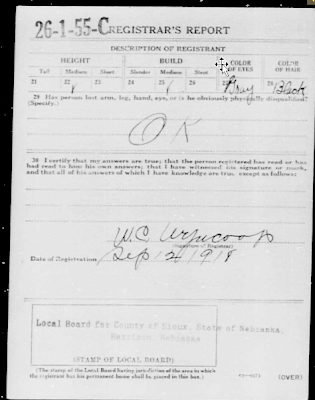 26-1-55-C REGISTRAR'S REPORT
DESCRIPTION OF REGISTRANT
HEIGHT BUILD COLOR OF EYES COLOR OF HAIR
Tall Medium Short Slender Medium Stout
21 22 23 24 25 26 27 Gray 28 Black
29 Has person lost arm, leg, hand, eye, or is he obviously physically disqualified?
(Specify.)
OK
30 I certify that my answers are true; that the person registered has read or has
had read to him his own answers; that I have witnessed his signature or mark,
and that all of his answers of which I have knowledge are true, except as follows:
W.C.
(Signature of Registrar)
Date of Registration Sep 12 1918
Local Board for County of Sioux, State of Nebraska,
Harrison Nebraska
(STAMP OF LOCAL BOARD)
(The stamp of the Local Board having jurisdiction of the area in which
the registrant has his permanent home shall be placed in this box.)
(OVER)